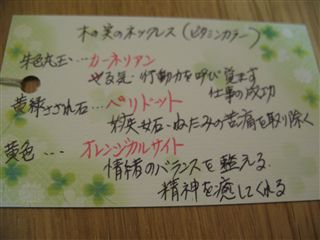 木の実のネックレス(ビタミンカラー)
朱色丸玉・・・カーネリアン
やる気・行動力を呼び覚ます
仕事の成功
黄緑さざれ石・・・ペリドット
嫉妬・ねたみの苦痛を取り除く
黄色・・・オレンジカルサイト
情緒のバランスを整える
精神を癒してくれる